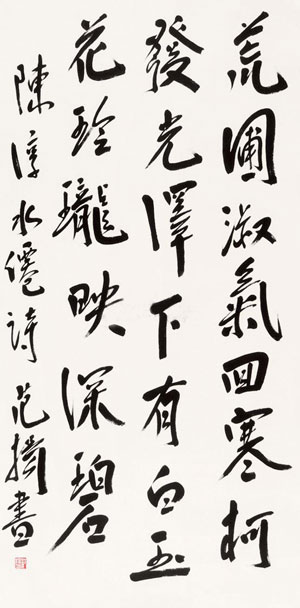 荒圃淑氣回寒柯
發光澤下有白玉
花玲瓏映深碧
陳淳水僊詩 范擣書